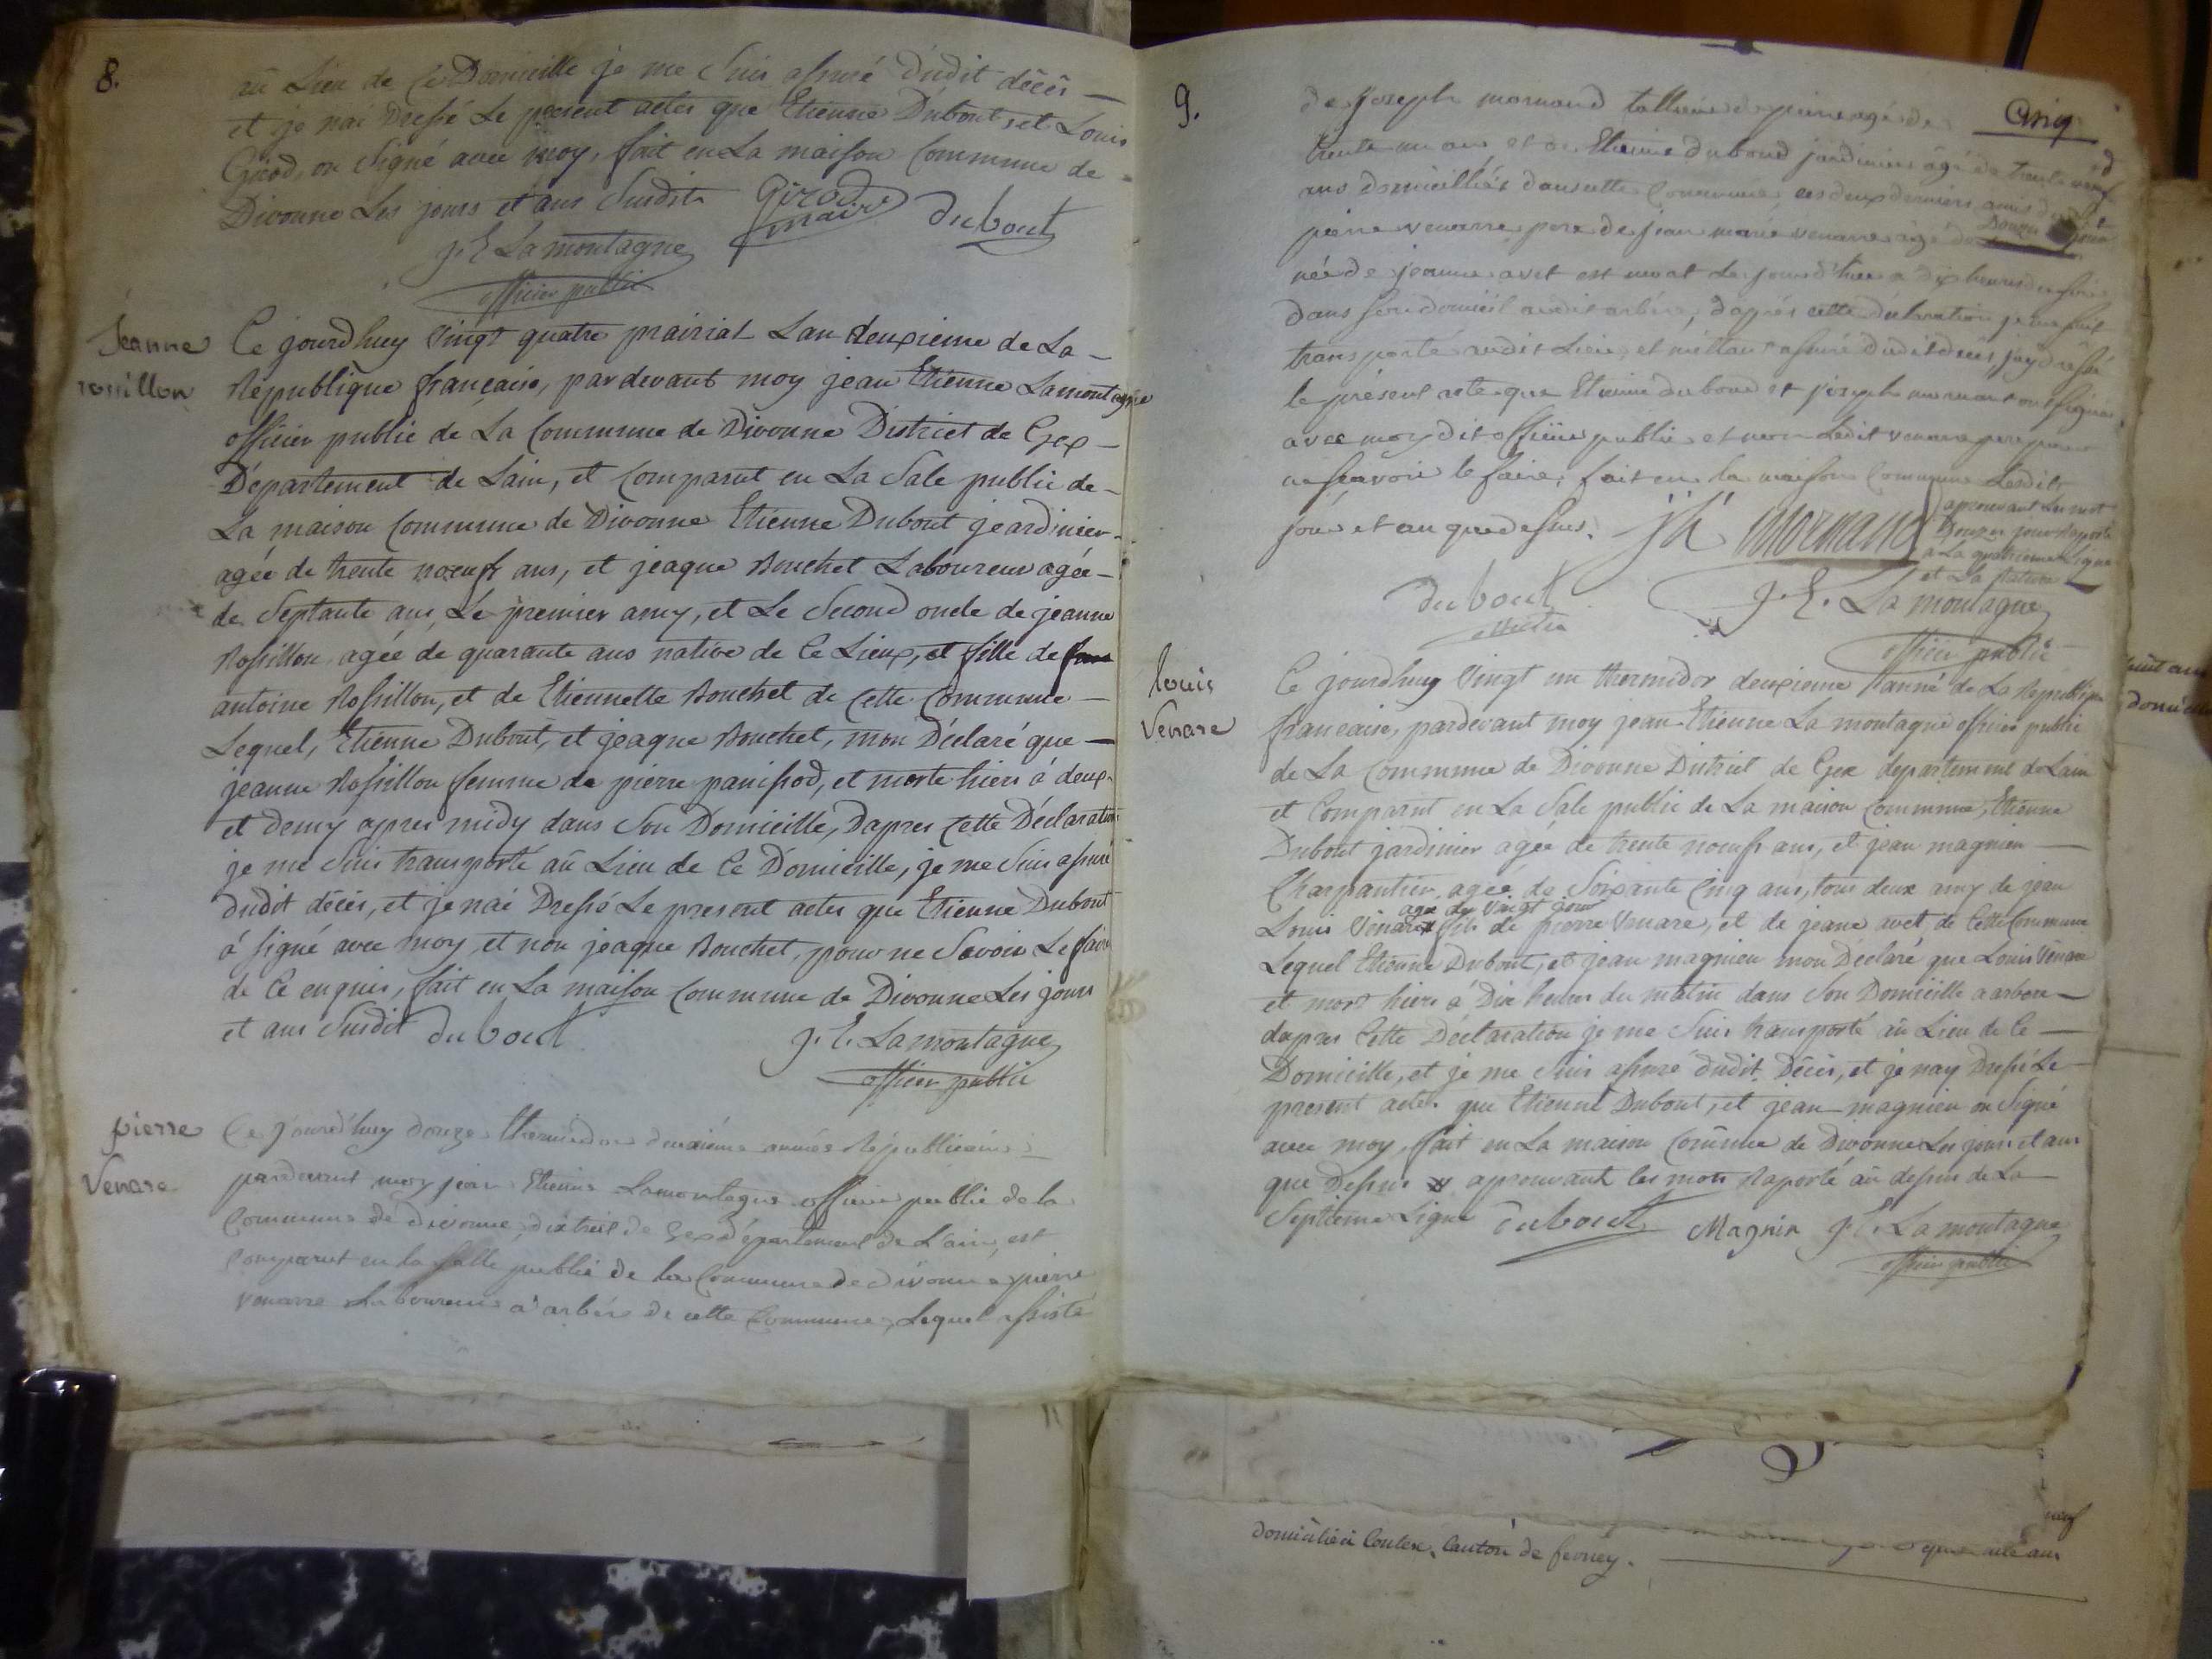 8.
au Lieu de Ce Domicille je me Suis assuré dudit décés
et je nai Dressé Le present actes que Etienne Dubout, et Louis
Girod, on Signé avec moy, fait en La maison Commune de
Divonne Les jours et ans Susdit Girod maire dubout
J. E Lamontagne
officier public
Jeanne
rossillon
Ce jourdhuy Vingt quatre prairial Lan deuxieme de La
Republique francaise, pardevant moy jean Etienne Lamontagne
officier public de La Commune de Divonne District de Gex
Département de Lain, et Comparut en La Sale public de
La maison Commune de Divonne Etienne Dubout jeardinier
agée de trente noeuf ans, et jeaque Bouchet Laboureur agée
de Septante ans, Le premier amy, et Le Second oncle de jeanne
Rossillon agée de quarante ans native de Ce Lieux, et fille de
antoine Rossillon, et de Etiennette Bouchet de Cette Commune
Lequel, Etienne Dubout, et jeaque Bouchet, mon Déclaré que
jeanne Rossillon femme de pierre panissod, et morte hiers à deux
et demy apres midy dans Son Domicille, Dapres Cette Déclaration
je me Suis transporté aû Lieu de Ce Domicille, je me Suis assuré
dudit décés, et je nai Dressé Le present actes que Etienne Dubout
à signé avec moy, et non jeaque Bouchet, pour ne Savoir Le faire
de Ce enquis, fait en La maison Commune de Divonne Les jours
et ans Susdit dubout J. E. Lamontagne
officier public
pierre
Venare
Ce jourdhuy douze thermidor deuxiéme année Républicaine
pardevant moy jean Etienne Lamontagne officier public de la
Commune de divonne, district de Gex département de L'ain, est
Comparut en la salle public de la Commune de divonne pierre
venarre Laboureur à arbére de cette Commune, Lequel assisté
9.
Cinq
de joseph mornand tallieur de pierre agé de
trente un ans et de Etienne duboud jardinier âgé de trente neuf
ans domicilliés dans cette Commune ces deux derniers amis dudit
pierre venarre pere de jean marie venarre âgé de Douze jour
née de jeanne avet est mort Le jour d'hier a dix heures du soir
dans son domicil audit arbére, d'aprés cette déclaration je me suis
transporté audit Lieu, et m'étant assuré dudit décés, j'ay dressé
le présent acte que Etienne duboud et joseph mornand ont signé
avec moy dit officier public et non Ledit venarre pere pour
ne sçavoir le faire, fait en la maison Commune Lesdits
jour et an que dessus. jh mornand
aprouvant Les mot
Douze jour Raporté
a La quatrieme Ligne
et La Rature
dubout J. E. Lamontagne
officier public
louis
Venare
Ce jourdhuy Vingt un thermidor deuxieme anné de La Republique
francaise, pardevant moy jean Etienne La montagne officier public
de La Commune de Divonne District de Gex departement de Lain
et Comparut en La Sale public de La maison Commune, Etienne
Dubout jardinier agée de trente noeufs ans, et jean magnien
Charpantier agée de Soixante Cinq ans, tous deux amy de jean
agé de Vingt jour
Louis Venare fils de pierre Venare, et de jeane avet de Cette Commune
Lequel Etienne Dubout, et jean magnien mon Déclaré que Louis Venare
et mort hiers à Dix heures du matin dans Son Domicille a arbere
dapres Cette Déclaration je me Suis transporté aû Lieu de Ce
Domicille, et je me Suis assuré dudit Décés, et je nay Dressé Le
present actes que Etienne Dubout, et jean magnien on Signé
avec moy, fait en La maison Comune de Divonne Les jours et ans
que Dessus aprouvant les mots Raporté aû dessus de La
Septieme Ligne dubout Magnin J. E. La montagne
officier public
domicilié à Contex, Canton de ferney.